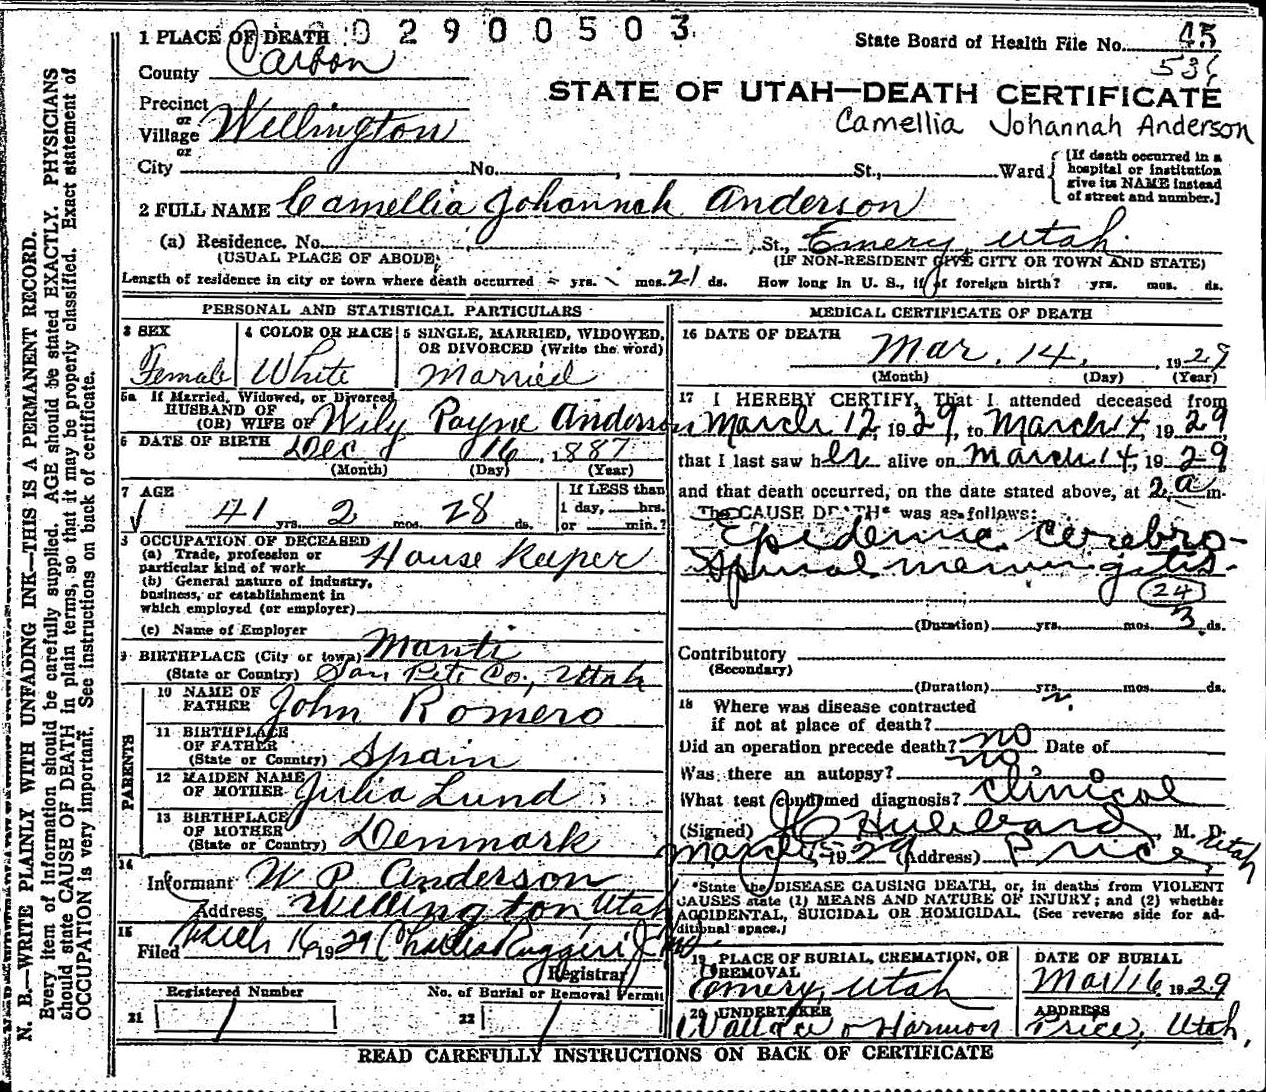 02900503
1 PLACE OF DEATH
State Board of Health File No. 45
County Carbon
536
STATE OF UTAH—DEATH CERTIFICATE
Precinct
or
Village Wellington
Camellia Johannah Anderson
or
City No. , St., Ward
[If death occurred in a
hospital or institution
give its NAME instead
of street and number.]
2 FULL NAME Camellia Johannah Anderson
(a) Residence. No. St., Emery, Utah
(USUAL PLACE OF ABODE)
(IF NON-RESIDENT GIVE CITY OR TOWN AND STATE)
Length of residence in city or town where death occurred - yrs. - mos. 21 ds. How long in U. S., if of foreign birth? yrs. mos. ds.
PERSONAL AND STATISTICAL PARTICULARS
3 SEX 4 COLOR OR RACE 5 SINGLE, MARRIED, WIDOWED,
OR DIVORCED (Write the word)
Female White Married
5a If Married, Widowed, or Divorced
HUSBAND OF
(OR) WIFE OF Wily Payne Anderson
6 DATE OF BIRTH Dec 16, 1887
(Month) (Day) (Year)
7 AGE
41 yrs. 2 mos. 28 ds.
If LESS than
1 day, hrs.
or min.?
8 OCCUPATION OF DECEASED
(a) Trade, profession or
particular kind of work House Keeper
(b) General nature of industry,
business, or establishment in
which employed (or employer)
(c) Name of Employer
9 BIRTHPLACE (City or town) Manti
(State or Country) San Pete Co., Utah
PARENTS
10 NAME OF
FATHER John Romero
11 BIRTHPLACE
OF FATHER
(State or Country) Spain
12 MAIDEN NAME
OF MOTHER Julia Lund
13 BIRTHPLACE
OF MOTHER
(State or Country) Denmark
14
Informant W P Anderson
Address Wellington Utah
15
Filed March 16 1929 Ruggeri
Registrar
Registered Number No. of Burial or Removal Permit
21 1 22 1
MEDICAL CERTIFICATE OF DEATH
16 DATE OF DEATH
Mar. 14, 1929
(Month) (Day) (Year)
17 I HEREBY CERTIFY, That I attended deceased from
March 12, 1929, to March 14, 1929
that I last saw her alive on March 14, 1929
and that death occurred, on the date stated above, at 2 a m.
The CAUSE DEATH* was as follows:
Epidemic cerebro-
spinal meningitis.
24
(Duration) yrs. mos. 3 ds.
Contributory
(Secondary)
(Duration) yrs. mos. ds.
18 Where was disease contracted
if not at place of death?
Did an operation precede death? no Date of
Was there an autopsy? no
What test confirmed diagnosis? Clinical
(Signed) J C Hubbard, M. D.
March 15 1929 (Address) Price, Utah
*State the DISEASE CAUSING DEATH, or, in deaths from VIOLENT
CAUSES state (1) MEANS AND NATURE OF INJURY; and (2) whether
ACCIDENTAL, SUICIDAL OR HOMICIDAL. (See reverse side for ad-
ditional space.)
19 PLACE OF BURIAL, CREMATION, OR
REMOVAL
Emery, Utah
DATE OF BURIAL
Mar 16, 1929
20 UNDERTAKER
Wallace & Harmon
ADDRESS
Price, Utah,
READ CAREFULLY INSTRUCTIONS ON BACK OF CERTIFICATE
N. B.—WRITE PLAINLY WITH UNFADING INK—THIS IS A PERMANENT RECORD.
Every item of information should be carefully supplied. AGE should be stated EXACTLY. PHYSICIANS
should state CAUSE OF DEATH in plain terms, so that it may be properly classified. Exact statement of
OCCUPATION is very important. See instructions on back of certificate.